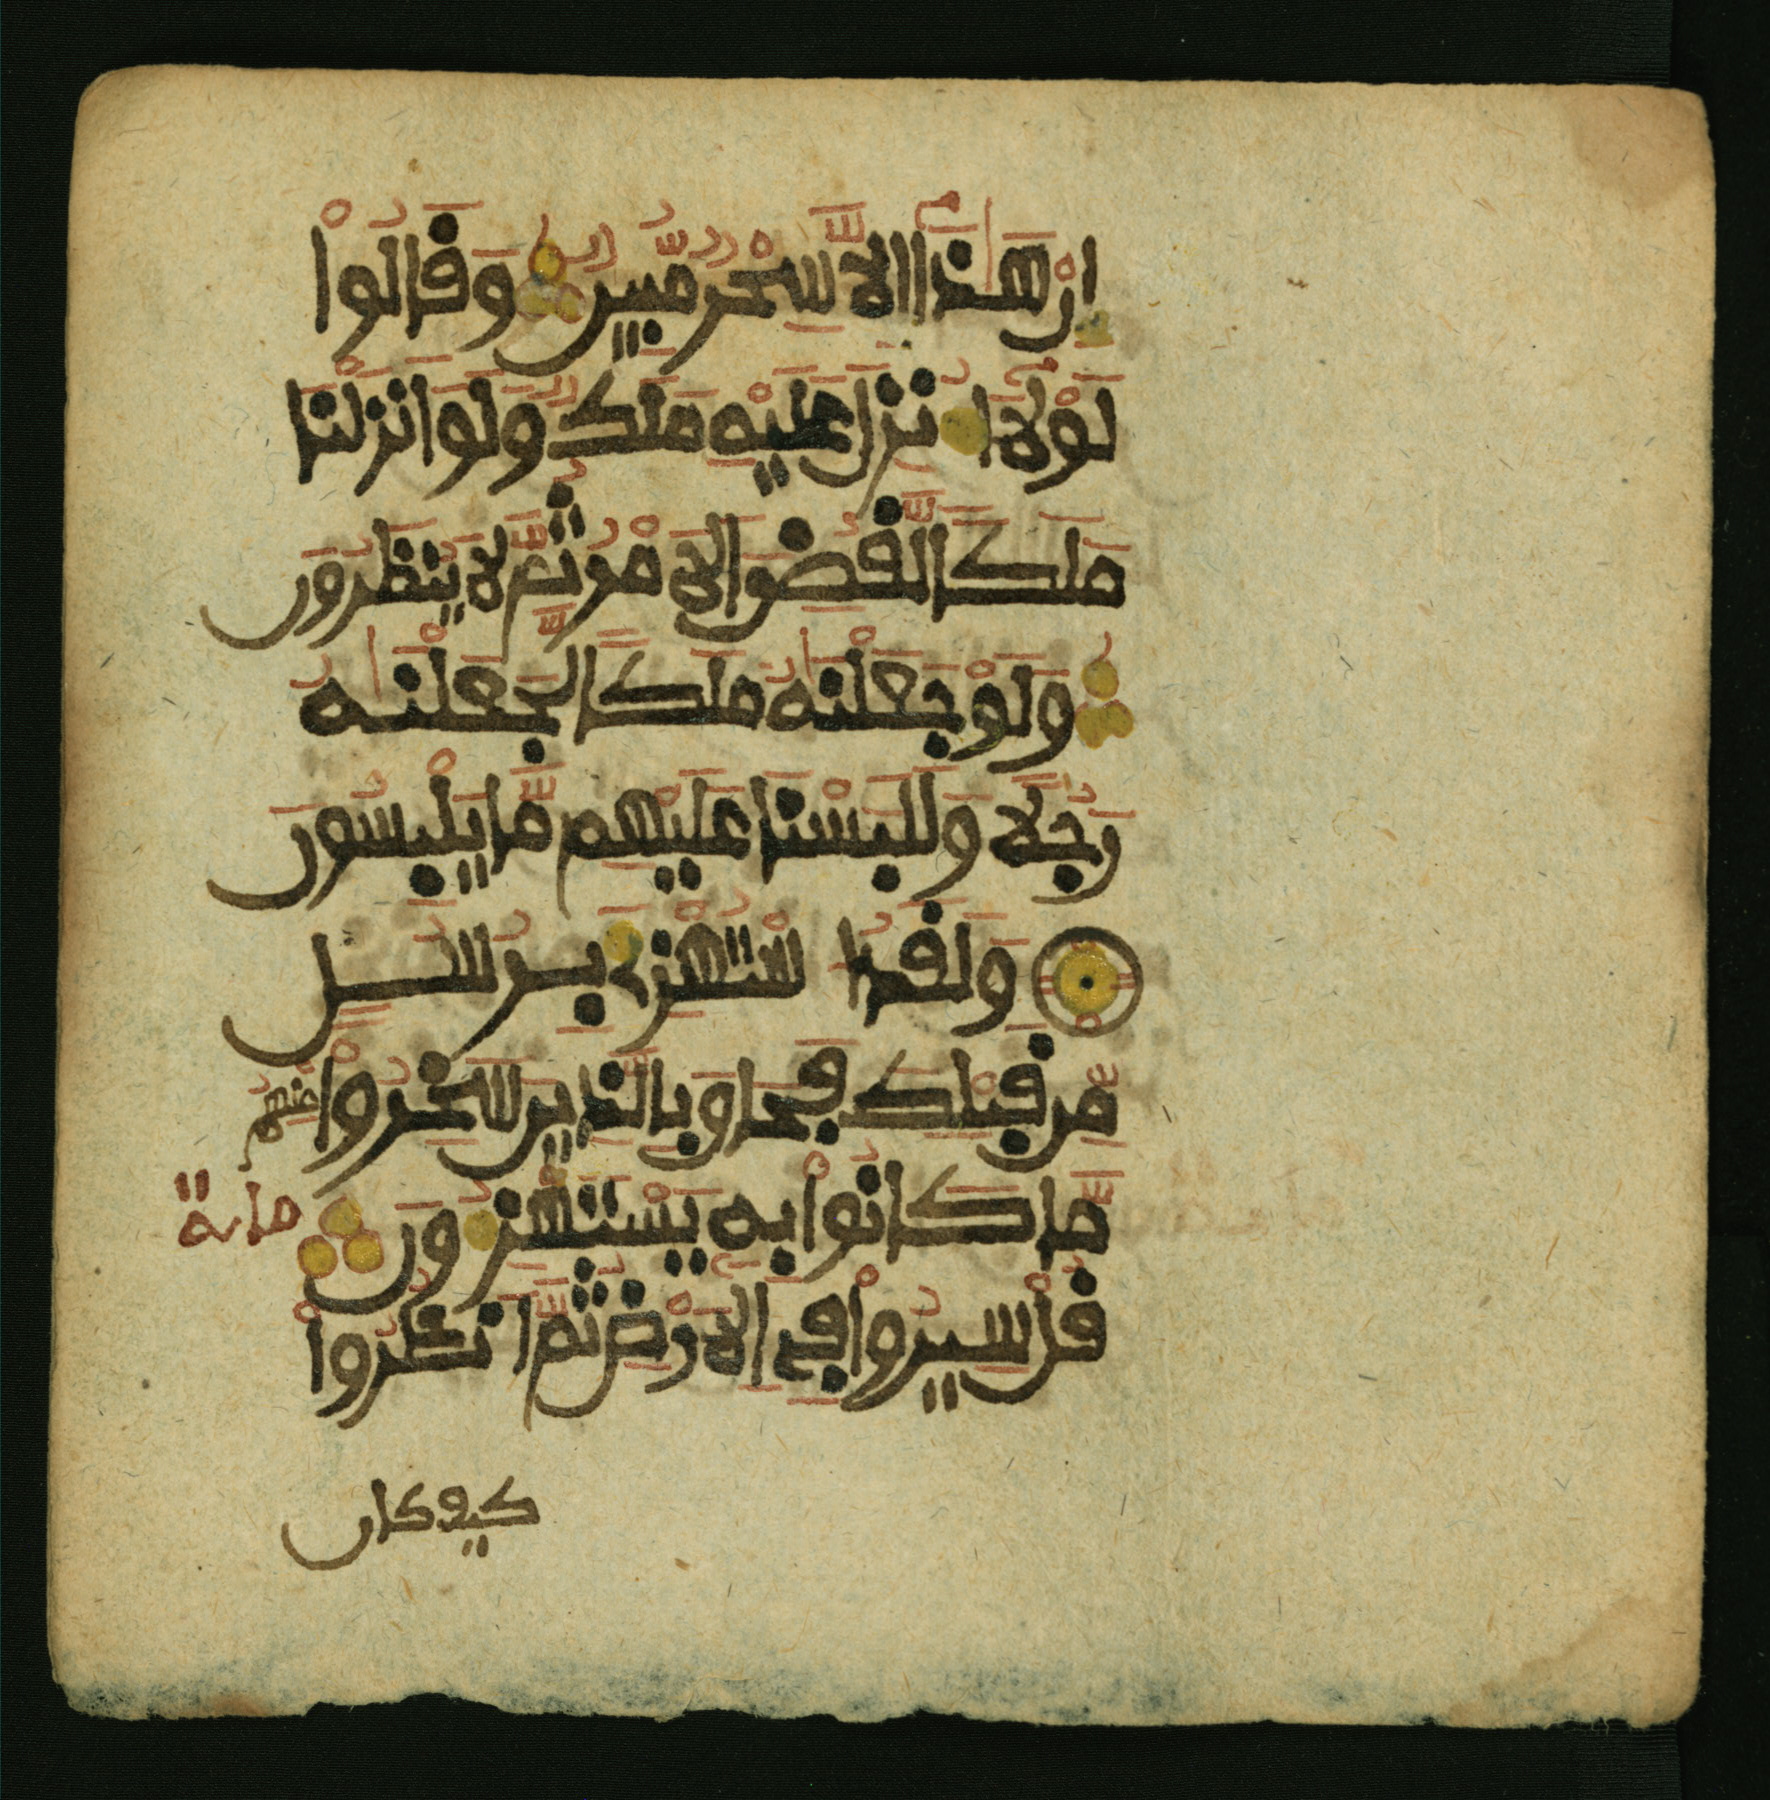 إِنْ هَٰذَا إِلَّا سِحْرٌ مُّبِينٌ وَقَالُوا۟
لَوْلَا أُنزِلَ عَلَيْهِ مَلَكٌ وَلَوْ أَنزَلْنَا
مَلَكًا لَّقُضِىَ الَامْرُ ثُمَّ لَا يُنظَرُونَ
وَلَوْ جَعَلْنَٰهُ مَلَكًا لَّجَعَلْنَٰهُ
رَجُلًا وَلَلَبَسْنَا عَلَيْهِم مَّا يَلْبِسُونَ
وَلَقَدُ اسْتُهْزِئَ بِرُسُلٍ
مِّن قَبْلِكَ فَحَاقَ بِالَّذِينَ سَخِرُوا۟ مِنْهُم
مَّا كَانُوا۟ بِهِ يَسْتَهْزِءُونَ
ماية
قُلْ سِيرُوا۟ فِى الَارْضِ ثُمَّ انظُرُوا۟
كيف كان